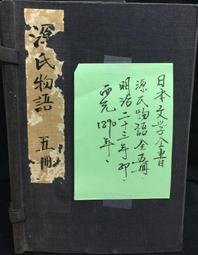 源氏物語 五冊
日本文学全書
源氏物語全五冊
明治二十三年印
西元1890年